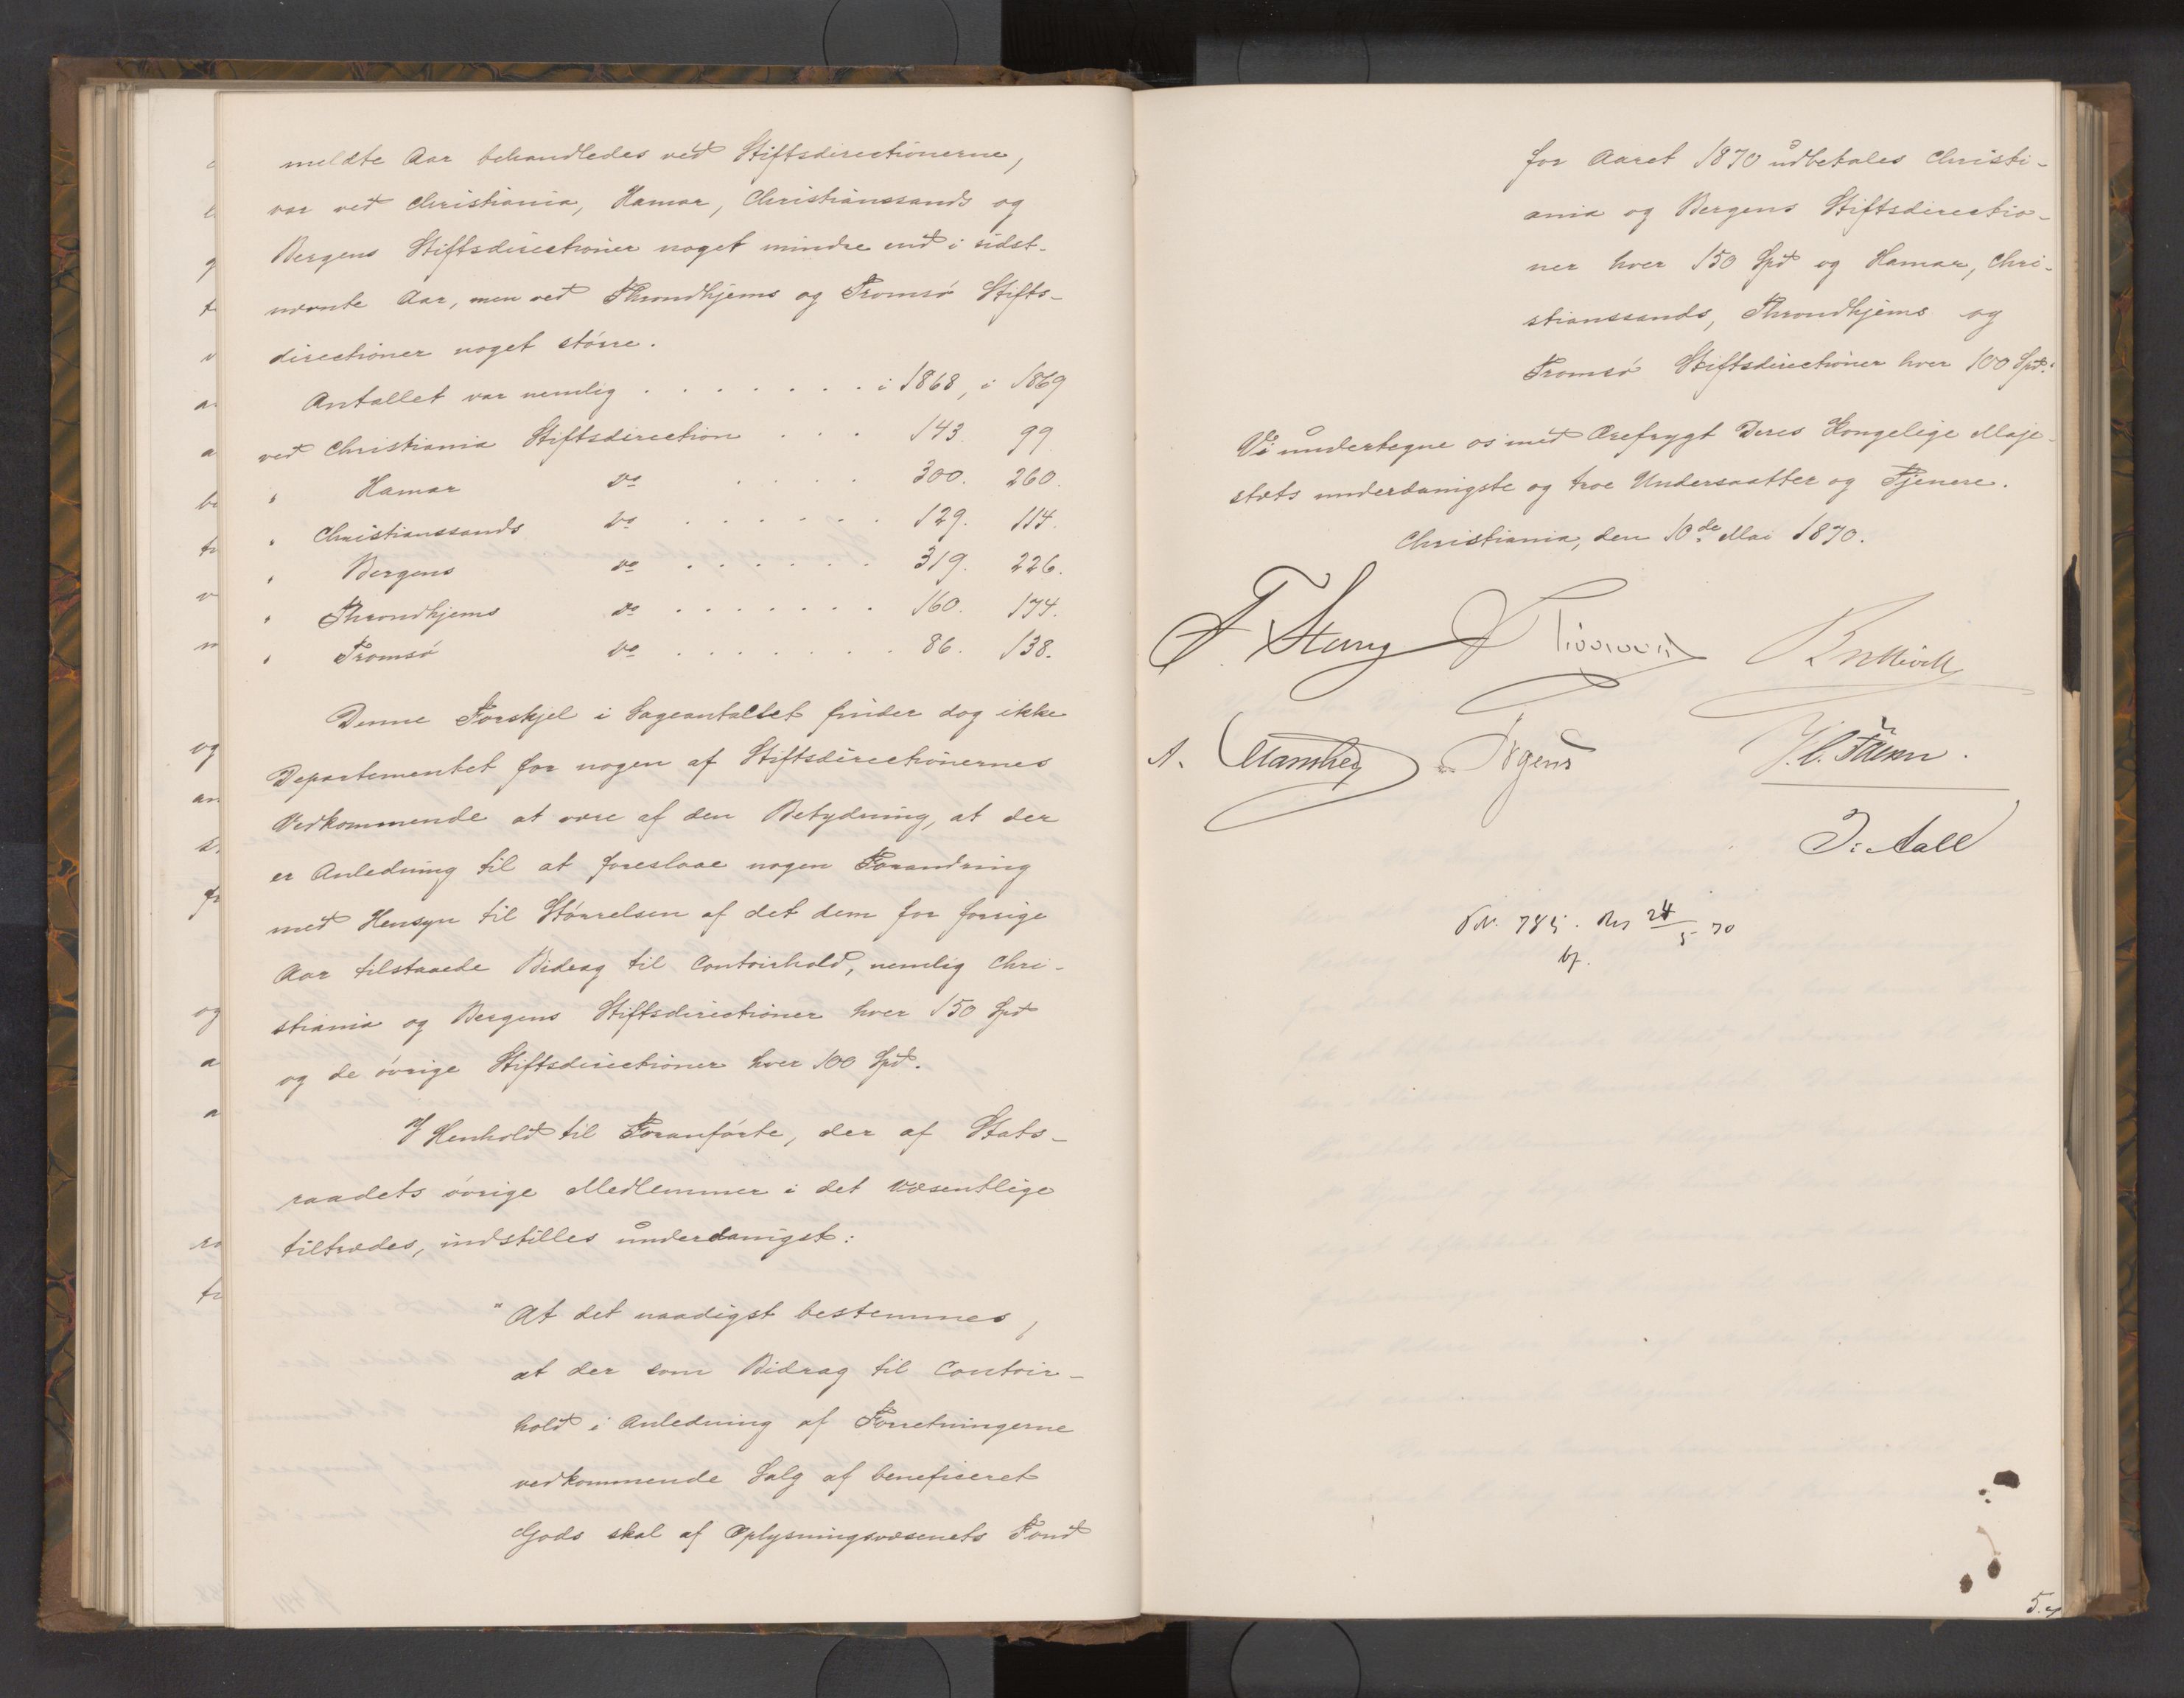 meldte Aar behandledes ved Stiftsdirectionerne,
var ved Christiania, Hamar, Christianssands og
Bergens Stiftsdirectioner noget mindre end i sidst-
nævnte Aar, men ved Throndhjems og Tromsö Stifts-
directioner noget större.
Antallet var nemlig . . . . . . . i 1868, i 1869
ved Christiania Stiftsdirection . . . 143. 99
" Hamar do . . . . 300. 260.
" Christianssands do . . . . . . 129. 114.
" Bergens do . . . . . . 319. 226.
" Throndhjems do . . . . . . . 160. 174.
" Tromsö do . . . . . . . 86. 138.
Denne Forskjel i Sageantallet finder dog ikke
Departementet for nogen af Stiftsdirectionernes
Vedkommende at være af den Betydning, at der
er Anledning til at foreslaae nogen Forandring
med Hensyn til Störrelsen af det dem for forrige
Aar tilstaaede Bidrag til Contoirhold, nemlig Chri-
stiania og Bergens Stiftsdirectioner hver 150 Spd
og de övrige Stiftsdirectioner hver 100 Spd.
I Henhold til Foranförte, der af Stats-
raadets övrige Medlemmer i det væsentlige
tiltrædes, indstilles underdanigst:
"At det naadigst bestemmes,
at der som Bidrag til Contoir-
hold i Anledning af Forretningerne
vedkommende Salg af benefiseret
Gods skal af Oplysningsvæsenets Fond
for Aaret 1870 udbetales Christi-
ania og Bergens Stiftsdirectio-
ner hver 150 Spd og Hamar, Chri-
stianssands, Throndhjems og
Tromsö Stiftsdirectioner hver 100 Spd."
Vi undertegne os med Ærefrygt Deres Kongelige Maje-
stæts underdanigste og troe Undersaatter og Tjenere.
Christiania, den 10de Mai 1870.
F. Stang
A. Manthey Irgens
J. Aall
No. 785. 24/5 70